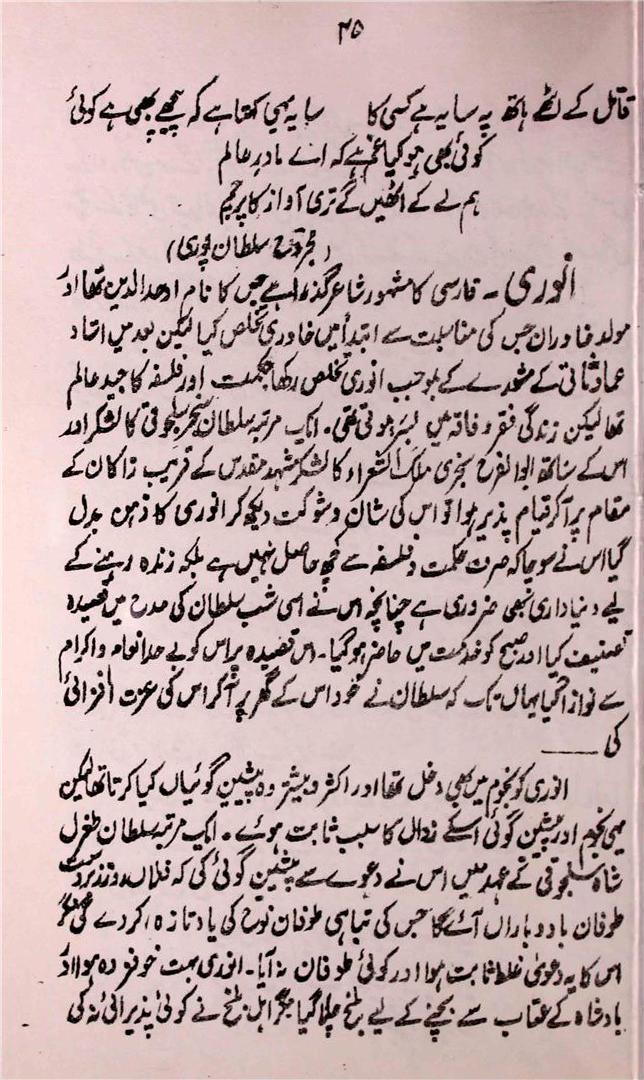 ۴۵
قاتل کے لئے ہاتھ پہ سایہ ہے کسی کا سایہ یہی کہتا ہے کہ پیچھے بھی ہے کوئی
کوئی بھی ہو گیا غم ہے کہ اے مادر عالم
ہم لے کے اٹھیں گے تری آواز کا پرچم
(مجروح سلطان پوری)
انوری ۔ فارسی کا مشہور شاعر گذرا ہے جس کا نام اوحد الدین تھا اور
مولد خاوران جس کی مناسبت سے ابتدأ میں خاوری تخلص کیا لیکن بعد میں استاد
عماد ثانی کے مشورے کے بموجب انوری تخلص رکھا حکمت اور فلسفہ کا جید عالم
تھا لیکن زندگی فقر و فاقہ میں بسر ہوتی تھی۔ ایک مرتبہ سلطان سنجر سلجوقی کا لشکر اور
اس کے ساتھ ابو الفرح سنجری ملک الشعراء کا لشکر مشہد مقدس کے قریب زاکان کے
مقام پر آ کر قیام پذیر ہوا تو اس کی شان و شوکت دیکھ کر انوری کا ذہن بدل
گیا اس نے سوچا کہ صرف حکمت و فلسفہ سے کچھ حاصل نہیں ہے بلکہ زندہ رہنے کے
لیے دنیا داری بھی ضروری ہے چنانچہ اس نے اسی شب سلطان کی مدح میں قصیدہ
تصنیف کیا اور صبح کو خدمت میں حاضر ہو گیا۔ اس قصیدہ پر اس کو بے حد انعام و اکرام
سے نوازا گیا یہاں تک کہ سلطان نے خود اس کے گھر پر آ کر اس کی عزت افزائی
کی ــــــ
انوری کو نجوم میں بھی دخل تھا اور اکثر و بیشتر وہ پیشین گوئیاں کیا کرتا تھا لیکن
یہی نجوم اور پیشین گوئی اسکے زوال کا سبب ثابت ہوئے ۔ ایک مرتبہ سلطان طغرل
شاہ سلجوقی کے عہد میں اس نے دعوے سے پیشین گوئی کی کہ فلاں روز زبردست
طوفان باد و باراں آئے گا جس کی تباہی طوفان نوح کی یاد تازہ کر دے گی مگر
اس کا یہ دعویٰ غلط ثابت ہوا اور کوئی طوفان نہ آیا۔ انوری بہت خوفزدہ ہوا اور
بادشاہ کے عتاب سے بچنے کے لیے بلخ چلا گیا مگر اہل بلخ نے کوئی پذیرائی نہ کی